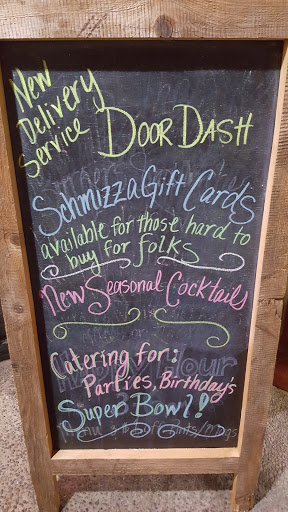 New
Delivery
Service
DOOR DASH
Schmizza Gift Cards
available for those hard to
buy for folks
New Seasonal Cocktails
Catering for:
Parties, Birthdays
Super Bowl!